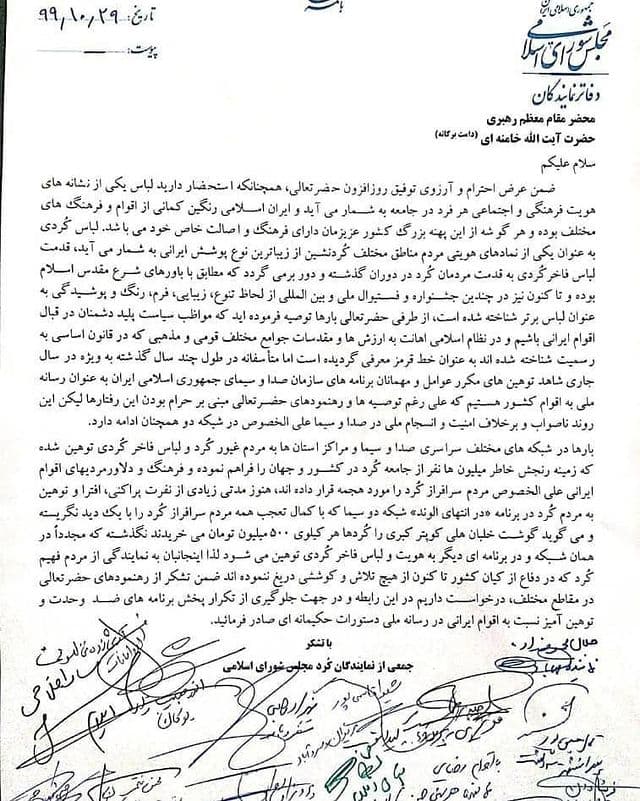 جمهوری اسلامی ایران
مجلس شورای اسلامی
دفاتر نمایندگان
تاریخ: ۹۹,۱۰,۲۹
پیوست:
محضر مقام معظم رهبری
حضرت آیت الله خامنه ای (دامت برکاته)
سلام علیکم
ضمن عرض احترام و آرزوی توفیق روزافزون حضرتعالی، همچنانکه استحضار دارید لباس یکی از نشانه های
هویت فرهنگی و اجتماعی هر فرد در جامعه به شمار می آید و ایران اسلامی رنگین کمانی از اقوام و فرهنگ های
مختلف بوده و هر گوشه از این پهنه بزرگ کشور عزیزمان دارای فرهنگ و اصالت خاص خود می باشد. لباس کردی
به عنوان یکی از نمادهای هویتی مردم مناطق مختلف کردنشین از زیباترین نوع پوشش ایرانی به شمار می آید، قدمت
لباس فاخر کردی به قدمت مردمان کُرد در دوران گذشته و دور برمی گردد که مطابق با باورهای شرع مقدس اسلام
بوده و تا کنون نیز در چندین جشنواره و فستیوال ملی و بین المللی از لحاظ تنوع، زیبایی، فرم، رنگ و پوشیدگی به
عنوان لباس برتر شناخته شده است، از طرفی حضرتعالی بارها توصیه فرموده اید که مواظب سیاست پلید دشمنان در قبال
اقوام ایرانی باشیم و در نظام اسلامی اهانت به ارزش ها و مقدسات جوامع مختلف قومی و مذهبی که در قانون اساسی به
رسمیت شناخته شده اند به عنوان خط قرمز معرفی گردیده است اما متأسفانه در طول چند سال گذشته به ویژه در سال
جاری شاهد توهین های مکرر عوامل و مهمانان برنامه های سازمان صدا و سیمای جمهوری اسلامی ایران به عنوان رسانه
ملی به اقوام کشور هستیم که علی رغم توصیه ها و رهنمودهای حضرتعالی مبنی بر حرام بودن این رفتارها لیکن این
روند ناصواب و برخلاف امنیت و انسجام ملی در صدا و سیما علی الخصوص در شبکه دو همچنان ادامه دارد.
بارها در شبکه های مختلف سراسری صدا و سیما و مراکز استان ها به مردم غیور کُرد و لباس فاخر کُردی توهین شده
که زمینه رنجش خاطر میلیون ها نفر از جامعه کُرد در کشور و جهان را فراهم نموده و فرهنگ و دلاورمردیهای اقوام
ایرانی علی الخصوص مردم سرافراز کُرد را مورد هجمه قرار داده اند، هنوز مدتی زیادی از نفرت پراکنی، افترا و توهین
به مردم کُرد در برنامه «در انتهای الوند» شبکه دو سیما که با کمال تعجب همه مردم سرافراز کُرد را با یک دید نگریسته
و می گوید گوشت خلبان هلی کوپتر کبری را کُردها هر کیلوی ۵۰۰ میلیون تومان می خریدند نگذشته که مجدداً در
همان شبکه و در برنامه ای دیگر به هویت و لباس فاخر کُردی توهین می شود لذا اینجانبان به نمایندگی از مردم فهیم
کُرد که در دفاع از کیان کشور تا کنون از هیچ تلاش و کوششی دریغ ننموده اند ضمن تشکر از رهنمودهای حضرتعالی
در مقاطع مختلف، درخواست داریم در این رابطه و در جهت جلوگیری از تکرار پخش برنامه های ضد وحدت و
توهین آمیز نسبت به اقوام ایرانی در رسانه ملی دستورات حکیمانه ای صادر فرمائید.
با تشکر
جمعی از نمایندگان کُرد مجلس شورای اسلامی